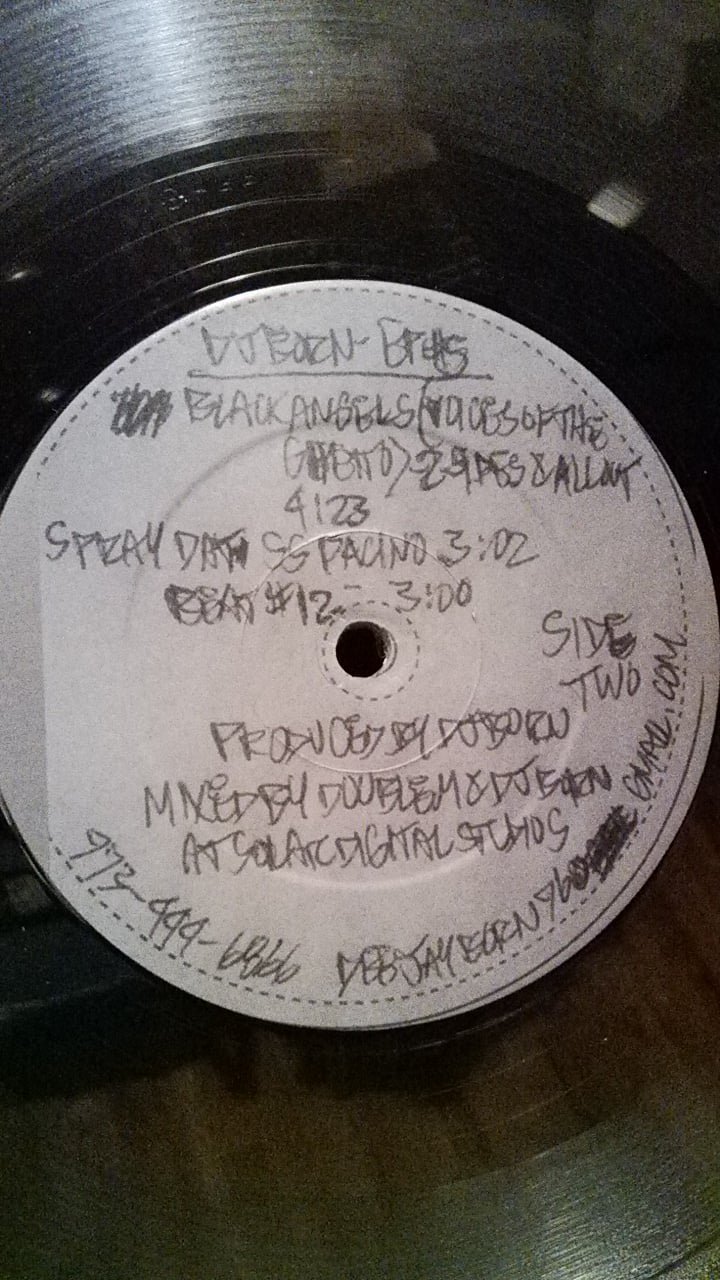 DJ BORN-
BLACK ANGELS (VOICES OF THE
GHETTO) 2 SIDES & ALL OUT
4:23
SPRAY DAT SG PACINO 3:02
BEAT #12 - 3:00
SIDE
TWO
PRODUCED BY DJ BORN
MIXED BY DOUBLE M & DJ BORN
AT SOLAIC DIGITAL STUDIOS
973-444-6866
DEEJAYBORN960 GMAIL.COM